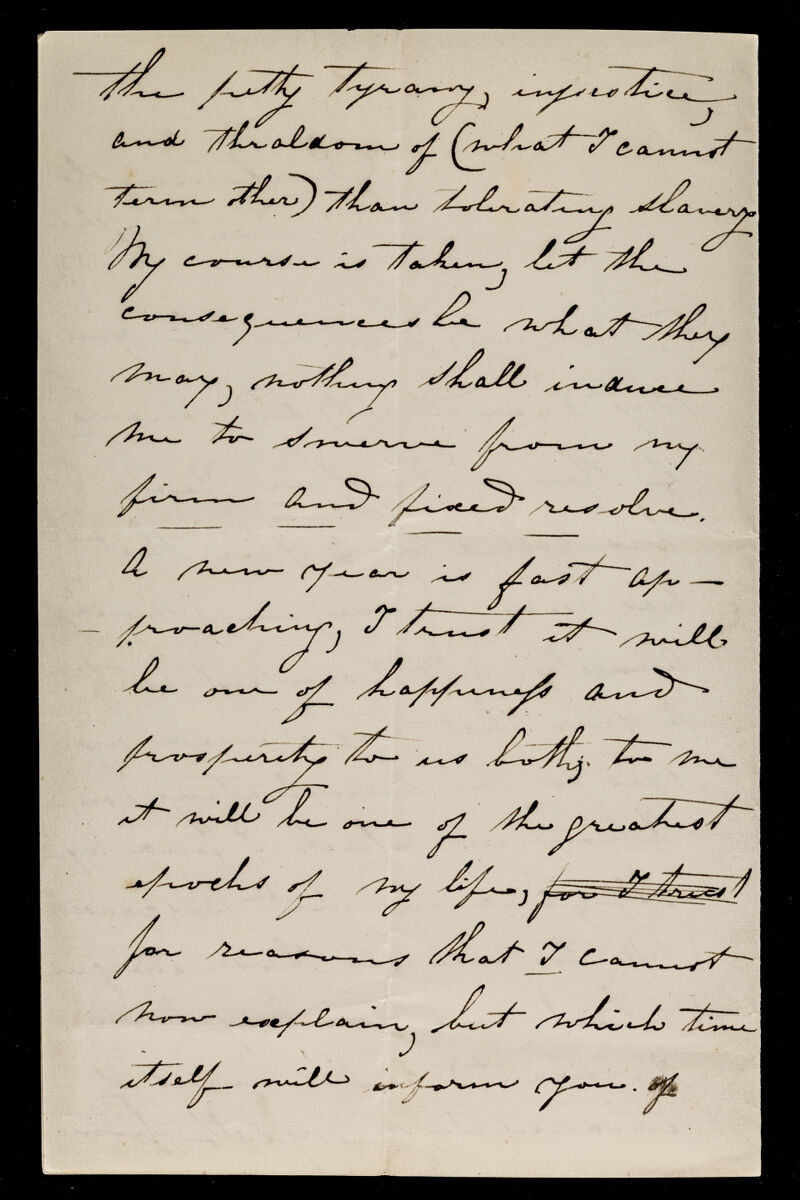 the petty tyrany, injustice,
and thraldom of (what I cannot
term other) than tolerating slavery
My course is taken, let the
consequences be what they
may, nothing shall induce
me to swerve from my
firm and fixed resolve.
A new year is fast ap-
proaching, I trust it will
be one of happiness and
prosperity to us both, to me
it will be one of the greatest
epochs of my life, for I trust
for reasons that I cannot
now explain, but which time
itself will inform you.